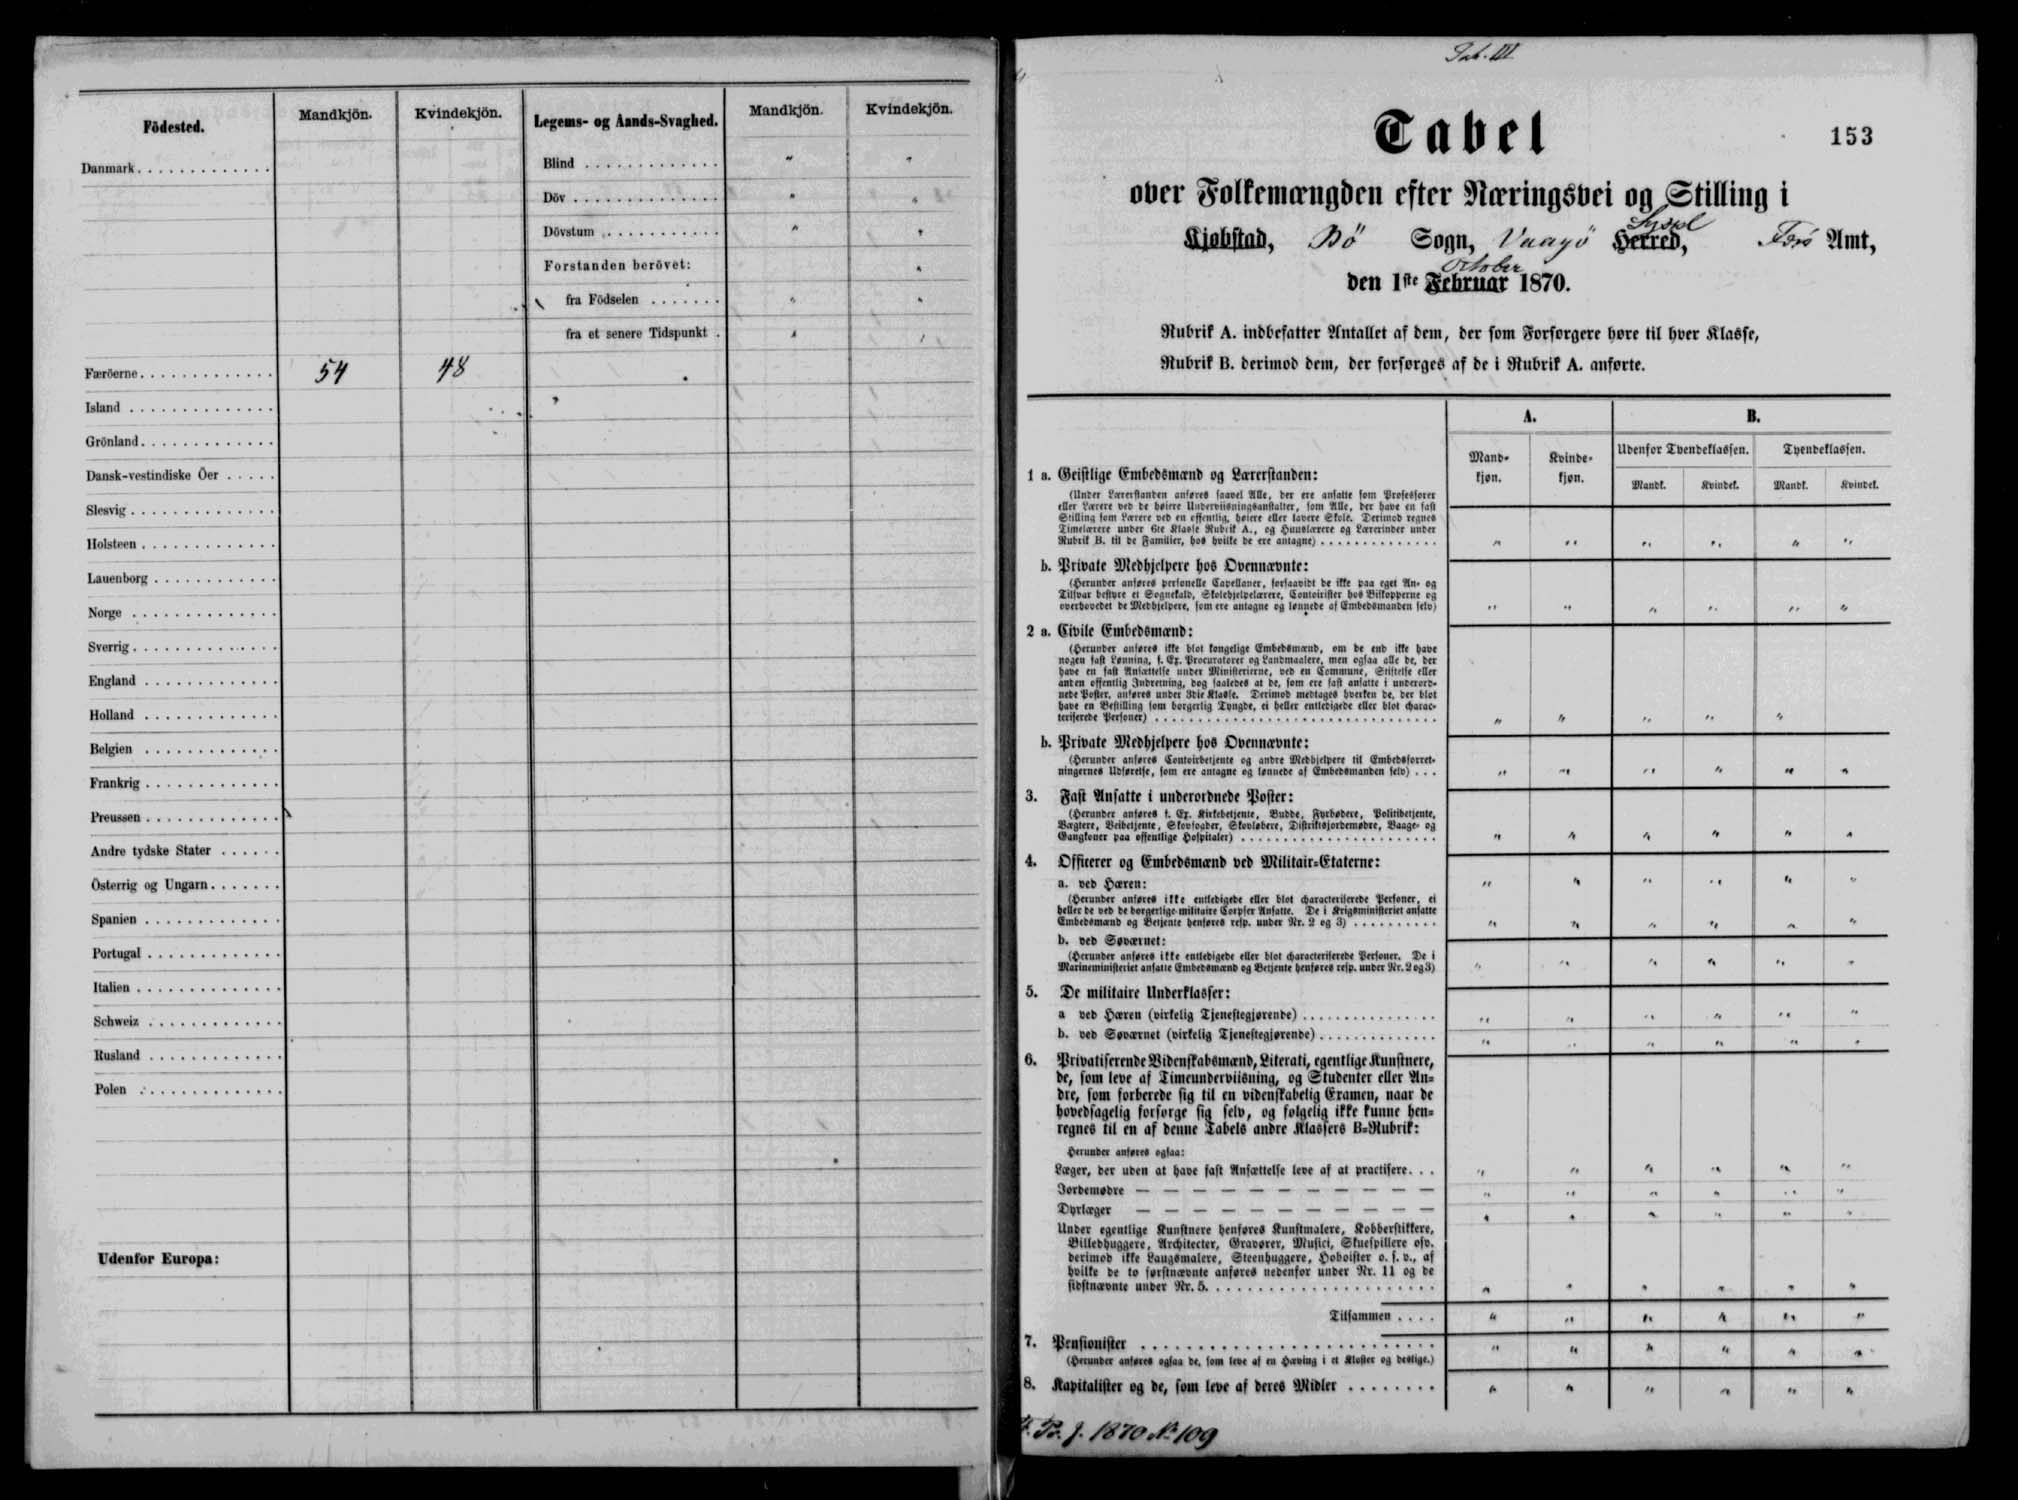 Födested.
Mandkjön.
Kvindekjön.
Legems- og Aands-Svaghed.
Mandkjön.
Kvindekjön.
Danmark
Blind
Döv
Dövstum
Forstanden berövet:
fra Födselen
fra et senere Tidspunkt
Færöerne 54 48
Island
Grönland
Dansk-vestindiske Öer
Slesvig
Holsteen
Lauenborg
Norge
Sverrig
England
Holland
Belgien
Frankrig
Preussen
Andre tydske Stater
Österrig og Ungarn
Spanien
Portugal
Italien
Schweiz
Rusland
Polen
Udenfor Europa:
Tab. III
Tabel
153
over Folkemængden efter Næringsvei og Stilling i
Syssel
Kjøbstad, Bö Sogn, Vaagö Herred, Færö Amt,
October
den 1ste Februar 1870.
Rubrik A. indbefatter Antallet af dem, der som Forsørgere høre til hver Klasse,
Rubrik B. derimod dem, der forsørges af de i Rubrik A. anførte.
A.
B.
Mand-
kjøn.
Kvinde-
kjøn.
Udenfor Tyendeklassen.
Tyendeklassen.
Mandk.
Kvindek.
Mandk.
Kvindek.
1 a. Geistlige Embedsmænd og Lærerstanden:
(Under Lærerstanden anføres saavel Alle, der ere ansatte som Professorer
eller Lærere ved de høiere Underviisningsanstalter, som Alle, der have en fast
Stilling som Lærere ved en offentlig, høiere eller lavere Skole. Derimod regnes
Timelærere under 6te Klasse Rubrik A., og Huuslærere og Lærerinder under
Rubrik B. til de Familier, hos hvilke de ere antagne)
b. Private Medhjelpere hos Ovennævnte:
(Herunder anføres personelle Capellaner, forsaavidt de ikke paa eget An- og
Tilsvar bestyre et Sognekald, Skolehjelpelærere, Contoirister hos Biskopperne og
overhovedet de Medhjelpere, som ere antagne og lønnede af Embedsmanden selv)
2 a. Civile Embedsmænd:
(Herunder anføres ikke blot kongelige Embedsmænd, om de end ikke have
nogen fast Lønning, f. Ex. Procuratorer og Landmaalere, men ogsaa alle de, der
have en fast Ansættelse under Ministerierne, ved en Commune, Stiftelse eller
anden offentlig Indretning, dog saaledes at de, som ere fast ansatte i underord-
nede Poster, anføres under 3die Klasse. Derimod medtages hverken de, der blot
have en Bestilling som borgerlig Tyngde, ei heller entledigede eller blot charac-
teriserede Personer)
b. Private Medhjelpere hos Ovennævnte:
(Herunder anføres Contoirbetjente og andre Medhjelpere til Embedsforret-
ningernes Udførelse, som ere antagne og lønnede af Embedsmanden selv)
3. Fast Ansatte i underordnede Poster:
(Herunder anføres f. Ex. Kirkebetjente, Budde, Fyrbødere, Politibetjente,
Vægtere, Veibetjente, Skovfogder, Skovløbere, Distriktsjordemødre, Vaage- og
Gangkoner paa offentlige Hospitaler)
4. Officerer og Embedsmænd ved Militair-Etaterne:
a. ved Hæren:
(Herunder anføres ikke entledigede eller blot characteriserede Personer, ei
heller de ved de borgerlige militaire Corpser Ansatte. De i Krigsministeriet ansatte
Embedsmænd og Betjente henføres resp. under Nr. 2 og 3)
b. ved Søværnet:
(Herunder anføres ikke entledigede eller blot characteriserede Personer. De i
Marineministeriet ansatte Embedsmænd og Betjente henføres resp. under Nr. 2 og 3)
5. De militaire Underklasser:
a ved Hæren (virkelig Tjenestegjørende)
b. ved Søværnet (virkelig Tjenestegjørende)
6. Privatiserende Videnskabsmænd, Literati, egentlige Kunstnere,
de, som leve af Timeunderviisning, og Studenter eller An-
dre, som forberede sig til en videnskabelig Examen, naar de
hovedsagelig forsørge sig selv, og følgelig ikke kunne hen-
regnes til en af denne Tabels andre Klassers B-Rubrik:
Herunder anføres ogsaa:
Læger, der uden at have fast Ansættelse leve af at practisere
Jordemødre
Dyrlæger
Under egentlige Kunstnere henføres Kunstmalere, Kobberstikkere,
Billedhuggere, Architecter, Gravører, Musici, Skuespillere osv.
derimod ikke Laugsmalere, Steenhuggere, Hoboister o. s. v., af
hvilke de to førstnævnte anføres nedenfor under Nr. 11 og de
sidstnævnte under Nr. 5.
Tilsammen
7. Pensionister
(Herunder anføres ogsaa de, som leve af en Hæving i et Kloster og deslige.)
8. Kapitalister og de, som leve af deres Midler
J. 1870 No 109